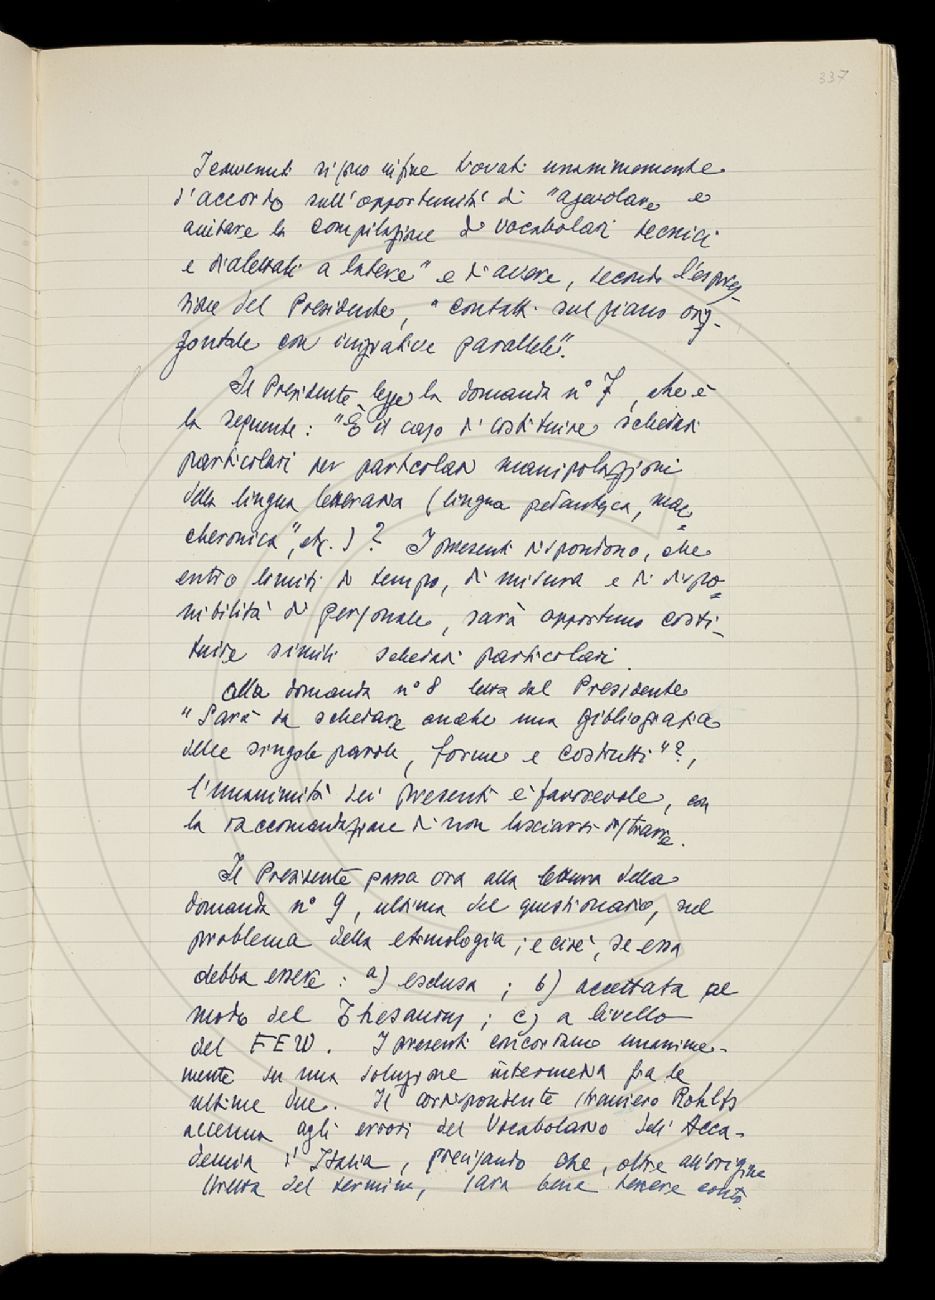 337
I convenuti si sono infine trovati unanimemente
d'accordo sull'opportunità di "agevolare e
aiutare la compilazione di vocabolari tecnici
e dialettali a latere" e di avere, secondo l'espres-
sione del Presidente, "contatti sul piano oriz-
zontale con iniziative parallele".
Il Presidente legge la domanda n° 7, che è
la seguente: "È il caso di costituire schedari
particolari per particolari manipolazioni
della lingua letteraria (lingua pedantesca, mac=
cheronica", etc.)? I presenti rispondono, che
entro limiti di tempo, di misura e di dispo=
nibilità di personale, sarà opportuno costi-
tuire simili schedari particolari.
Alla domanda n° 8 letta dal Presidente
"Sarà da schedare anche una bibliografia
delle singole parole, forme e costrutti"?,
l'unanimità dei presenti è favorevole, con
la raccomandazione di non lasciarsi distrarre.
Il Presidente passa ora alla lettura della
domanda n° 9, ultima del questionario, sul
problema della etimologia; e cioè, se essa
debba essere: a) esclusa; b) accettata al
modo del Thesaurus; c) a livello
del FEW. I presenti concordano unanime-
mente su una soluzione intermedia fra le
ultime due. Il corrispondente straniero Rohlfs
accenna agli errori del Vocabolario dell'Acca-
demia d'Italia, precisando che, oltre all'origine
stretta del termine, sarà bene tenere conto